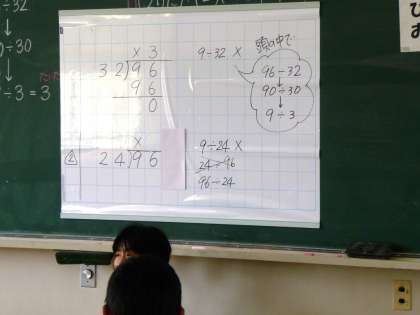 ÷32
↓
0÷30
↓
÷3=3
× 3
32)96
96
0
9÷32 ×
頭の中で…
96÷32
↓
90÷30
↓
9÷3
②
×
24)96
9÷24 ×
24÷96
96÷24